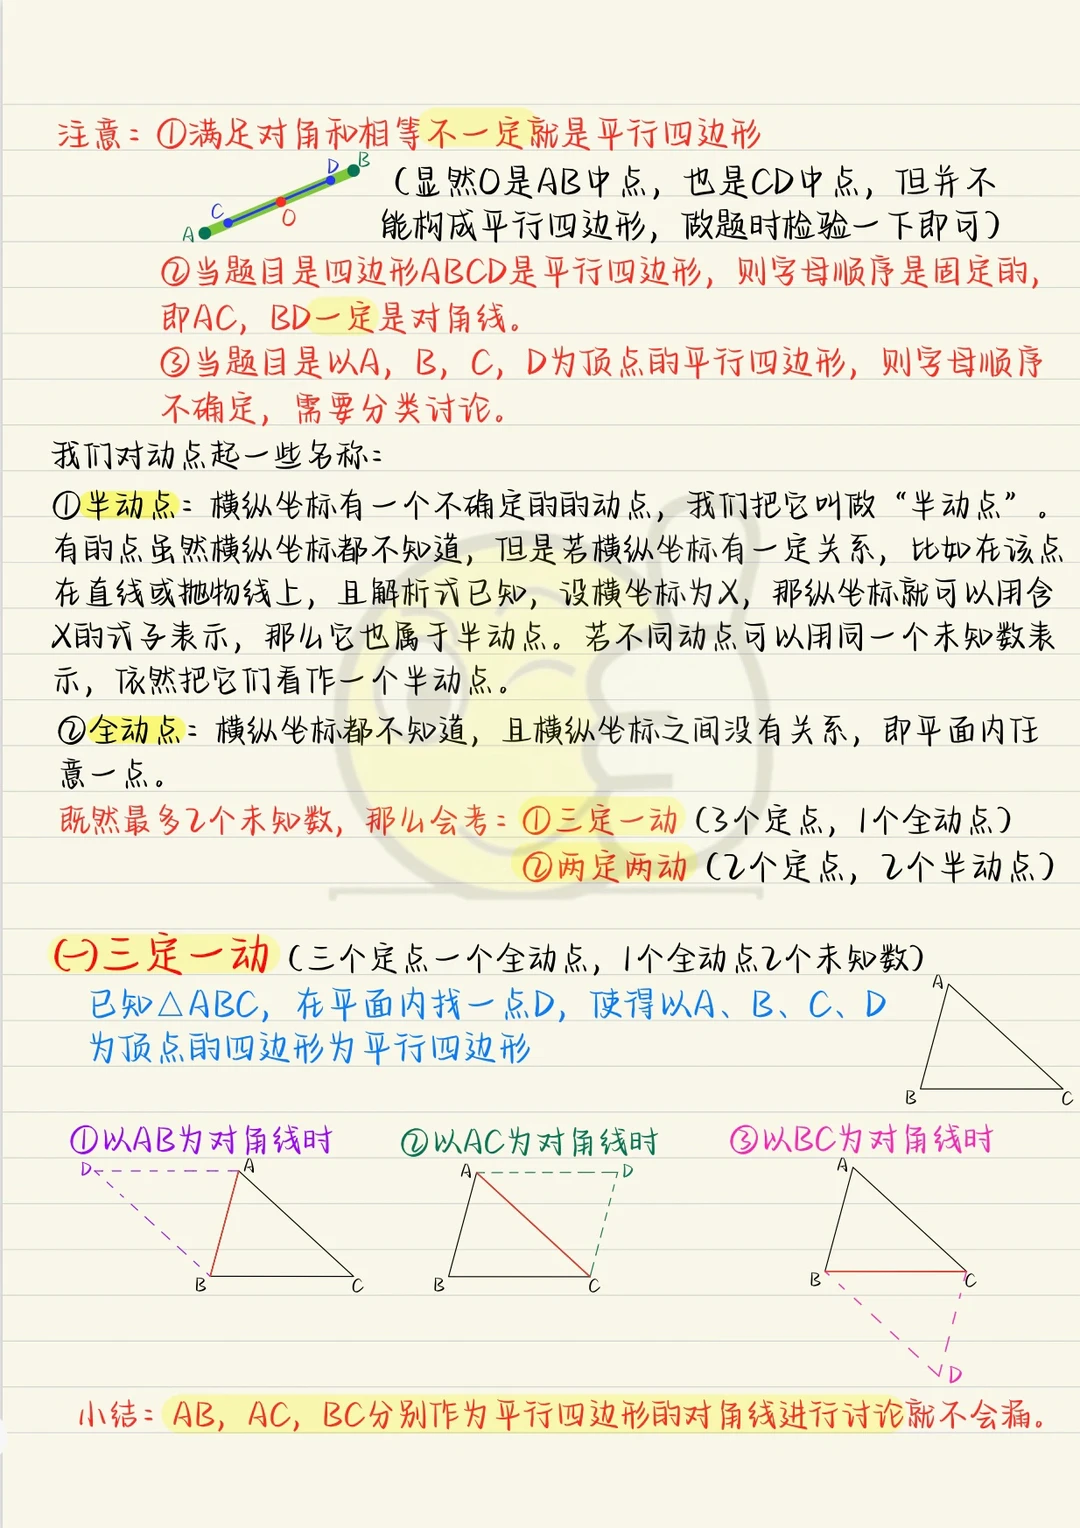 注意：①满足对角和相等不一定就是平行四边形
A C O D B
（显然O是AB中点，也是CD中点，但并不
能构成平行四边形，做题时检验一下即可）
②当题目是四边形ABCD是平行四边形，则字母顺序是固定的，
即AC，BD一定是对角线。
③当题目是以A，B，C，D为顶点的平行四边形，则字母顺序
不确定，需要分类讨论。
我们对动点起一些名称：
①半动点：横纵坐标有一个不确定的的动点，我们把它叫做“半动点”。
有的点虽然横纵坐标都不知道，但是若横纵坐标有一定关系，比如在该点
在直线或抛物线上，且解析式已知，设横坐标为X，那纵坐标就可以用含
X的式子表示，那么它也属于半动点。若不同动点可以用同一个未知数表
示，依然把它们看作一个半动点。
②全动点：横纵坐标都不知道，且横纵坐标之间没有关系，即平面内任
意一点。
既然最多2个未知数，那么会考：①三定一动（3个定点，1个全动点）
②两定两动（2个定点，2个半动点）
(一)三定一动（三个定点一个全动点，1个全动点2个未知数）
已知△ABC，在平面内找一点D，使得以A、B、C、D
为顶点的四边形为平行四边形
A
B C
①以AB为对角线时 ②以AC为对角线时 ③以BC为对角线时
D A A D A
B C B C B C
D
小结：AB，AC，BC分别作为平行四边形的对角线进行讨论就不会漏。